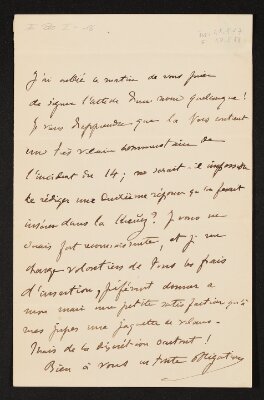 J'ai oublié ce matin de vous prier
de signer l'article d'un nom quelconque !
Je viens d'apprendre que la Voss contient
un très vilain commentaire de
l'incident du 14 ; ne serait-il impossible
de rédiger une deuxième réponse qu'on ferait
insérer dans la ? Je vous en
serais fort reconnaissante, et je me
charge volontiers de tous les frais
d'insertion, préférant donner à
mon mari une petite satisfaction qu'à
mes jupes une jaquette de velours.
Mais de la discrétion surtout !
Bien à vous et toute obligation